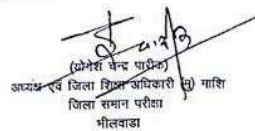 (योगेश चन्द्र पारीक)
अध्यक्ष एवं जिला शिक्षा अधिकारी (मु) माशि
जिला समान परीक्षा
भीलवाडा